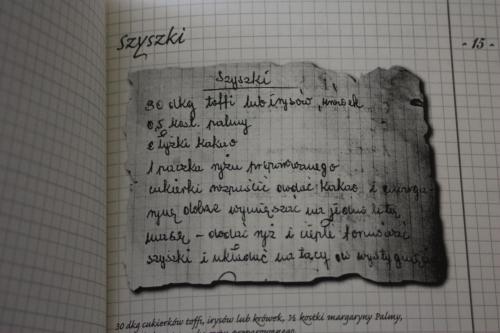 Szyszki
- 15 -
Szyszki
30 dkg toffi lub irysów, krówek
0,5 kost. palmy
2 łyżki kakao
1 paczka ryżu preparowanego
cukierki rozpuścić dodać kakao i
dobrze wymieszać na jednolitą
masę - dodać ryż i ciepłe formować
szyszki i układać na tacy do
30 dkg cukierków toffi, irysów lub krówek, ½ kostki margaryny Palmy,